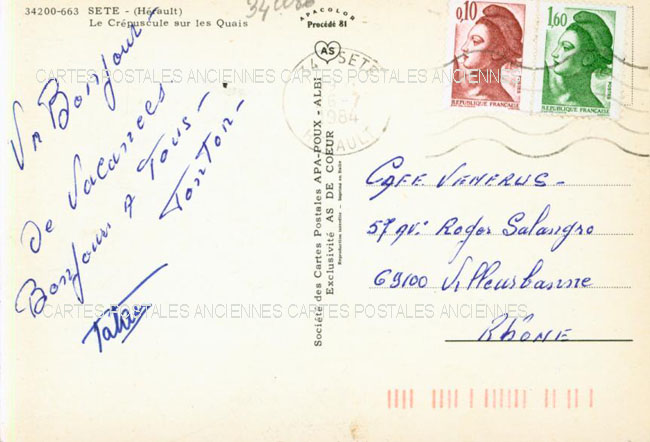 34200-663 SETE - (Hérault)
Le Crépuscule sur les Quais
APACOLOR
Procédé 81
AS
Société des Cartes Postales APA-POUX - ALBI
Exclusivité AS DE COEUR
Reproduction interdite - Imprimé en Italie
Un Bonjour -
de Vacances.
Bonjour A Tous -
TonTon -
0,10
REPUBLIQUE FRANÇAISE
1,60
REPUBLIQUE FRANÇAISE
SETE
1984
HERAULT
CARTES POSTALES ANCIENNES CARTES POSTALES ANCIENNES
CAFE VENERUS -
57 av: Roger Salangro
69100 Villeurbanne
RHÔNE
CARTES POSTALES ANCIENNES CARTES POSTALES ANCIENNES